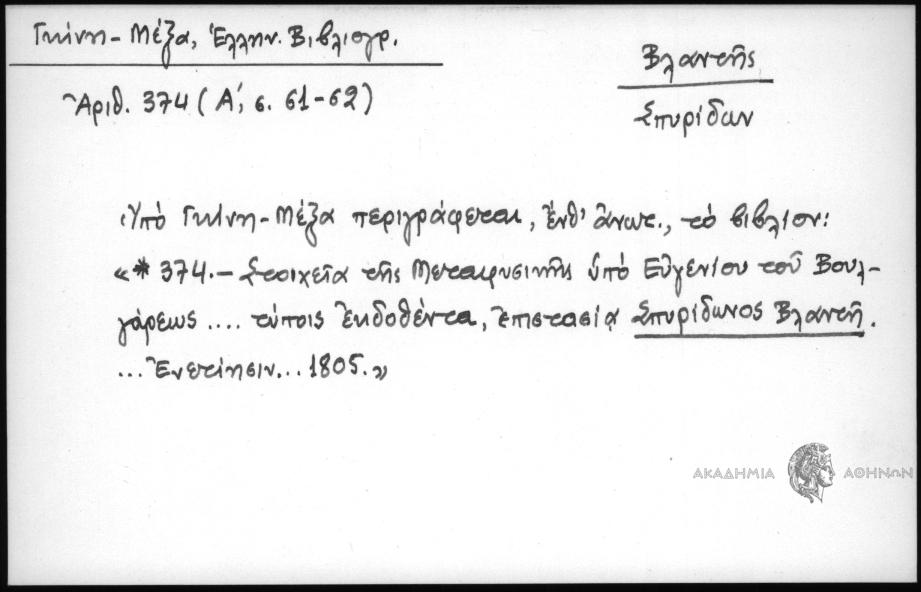 Γκίνη-Μέξα, Ἑλλην. Βιβλιογρ.
Ἀριθ. 374 (Α΄, σ. 61-62)
Βλαντῆς
Σπυρίδων
Ὑπὸ Γκίνη-Μέξα περιγράφεται, ἔνθ' ἄνωτ., τὸ βιβλίον:
«* 374.- Στοιχεῖα τῆς Μεταφυσικῆς ὑπὸ Εὐγενίου τοῦ Βουλ-
γάρεως .... τύποις ἐκδοθέντα, ἐπιστασίᾳ Σπυρίδωνος Βλαντῆ.
... Ἐνετίησιν... 1805.»
ΑΚΑΔΗΜΙΑ ΑΘΗΝΩΝ